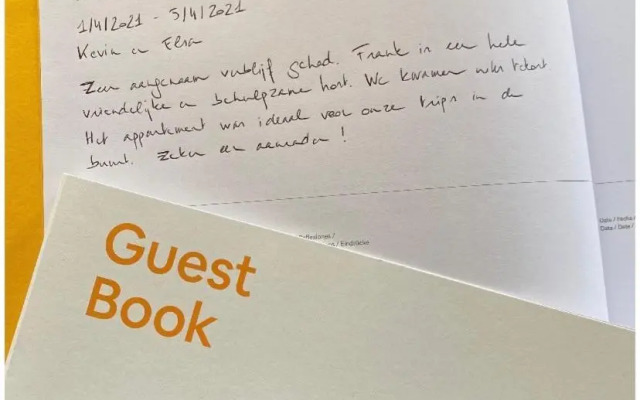 1/4/2021 - 5/4/2021
Kevin en Elsa
Zeer aangenaam verblijf gehad. Frank is een hele
vriendelijke en behulpzame host. We kwamen niks tekort
Het appartement was ideaal voor onze trips in de
buurt. Zeker een aanrader!
Guest
Book
/ Eindrücke
Date /